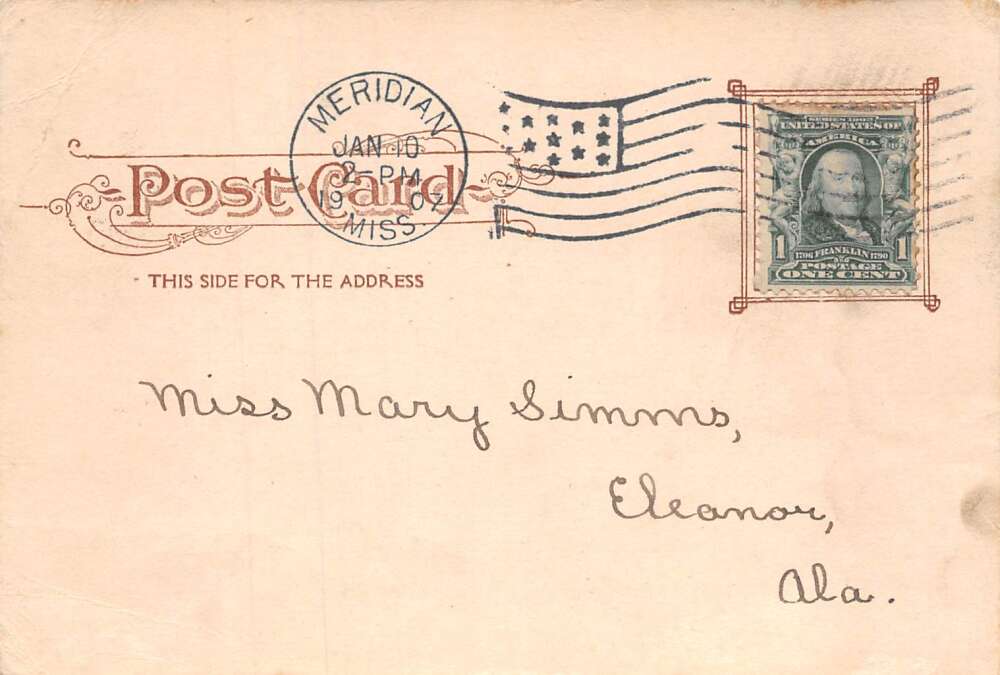 MERIDIAN
JAN 10
2-PM
19 07
MISS.
Post Card
THIS SIDE FOR THE ADDRESS
SERIES 1902
UNITED STATES OF
AMERICA
1 1
1706 FRANKLIN 1790
POSTAGE
ONE CENT
Miss Mary Simms,
Eleanor,
Ala.